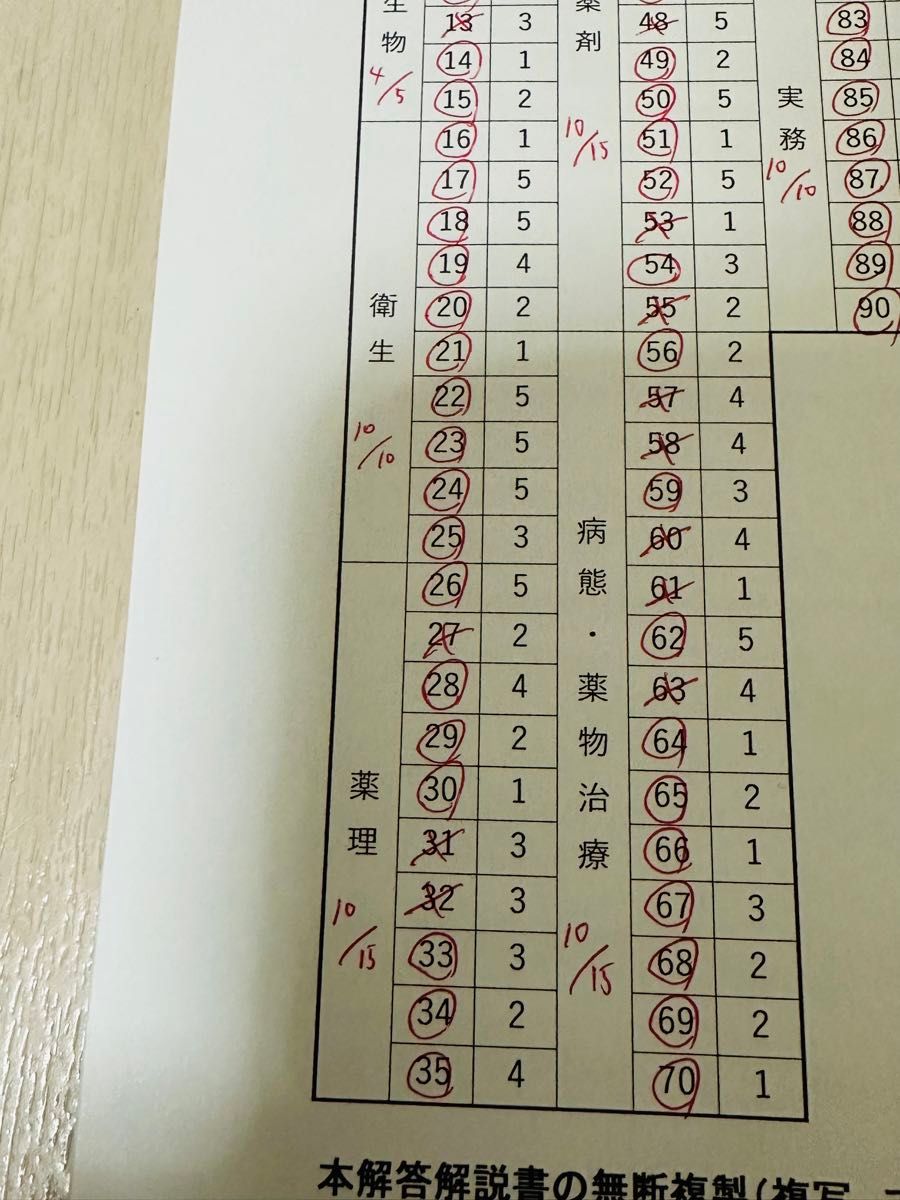 生物
4/5
13 3
14 1
15 2
衛生
10/10
16 1
17 5
18 5
19 4
20 2
21 1
22 5
23 5
24 5
25 3
薬理
10/15
26 5
27 2
28 4
29 2
30 1
31 3
32 3
33 3
34 2
35 4
薬剤
10/15
48 5
49 2
50 5
51 1
52 5
53 1
54 3
55 2
病態・薬物治療
10/15
56 2
57 4
58 4
59 3
60 4
61 1
62 5
63 4
64 1
65 2
66 1
67 3
68 2
69 2
70 1
実務
10/10
83
84
85
86
87
88
89
90
本解答解説書の無断複製(複写